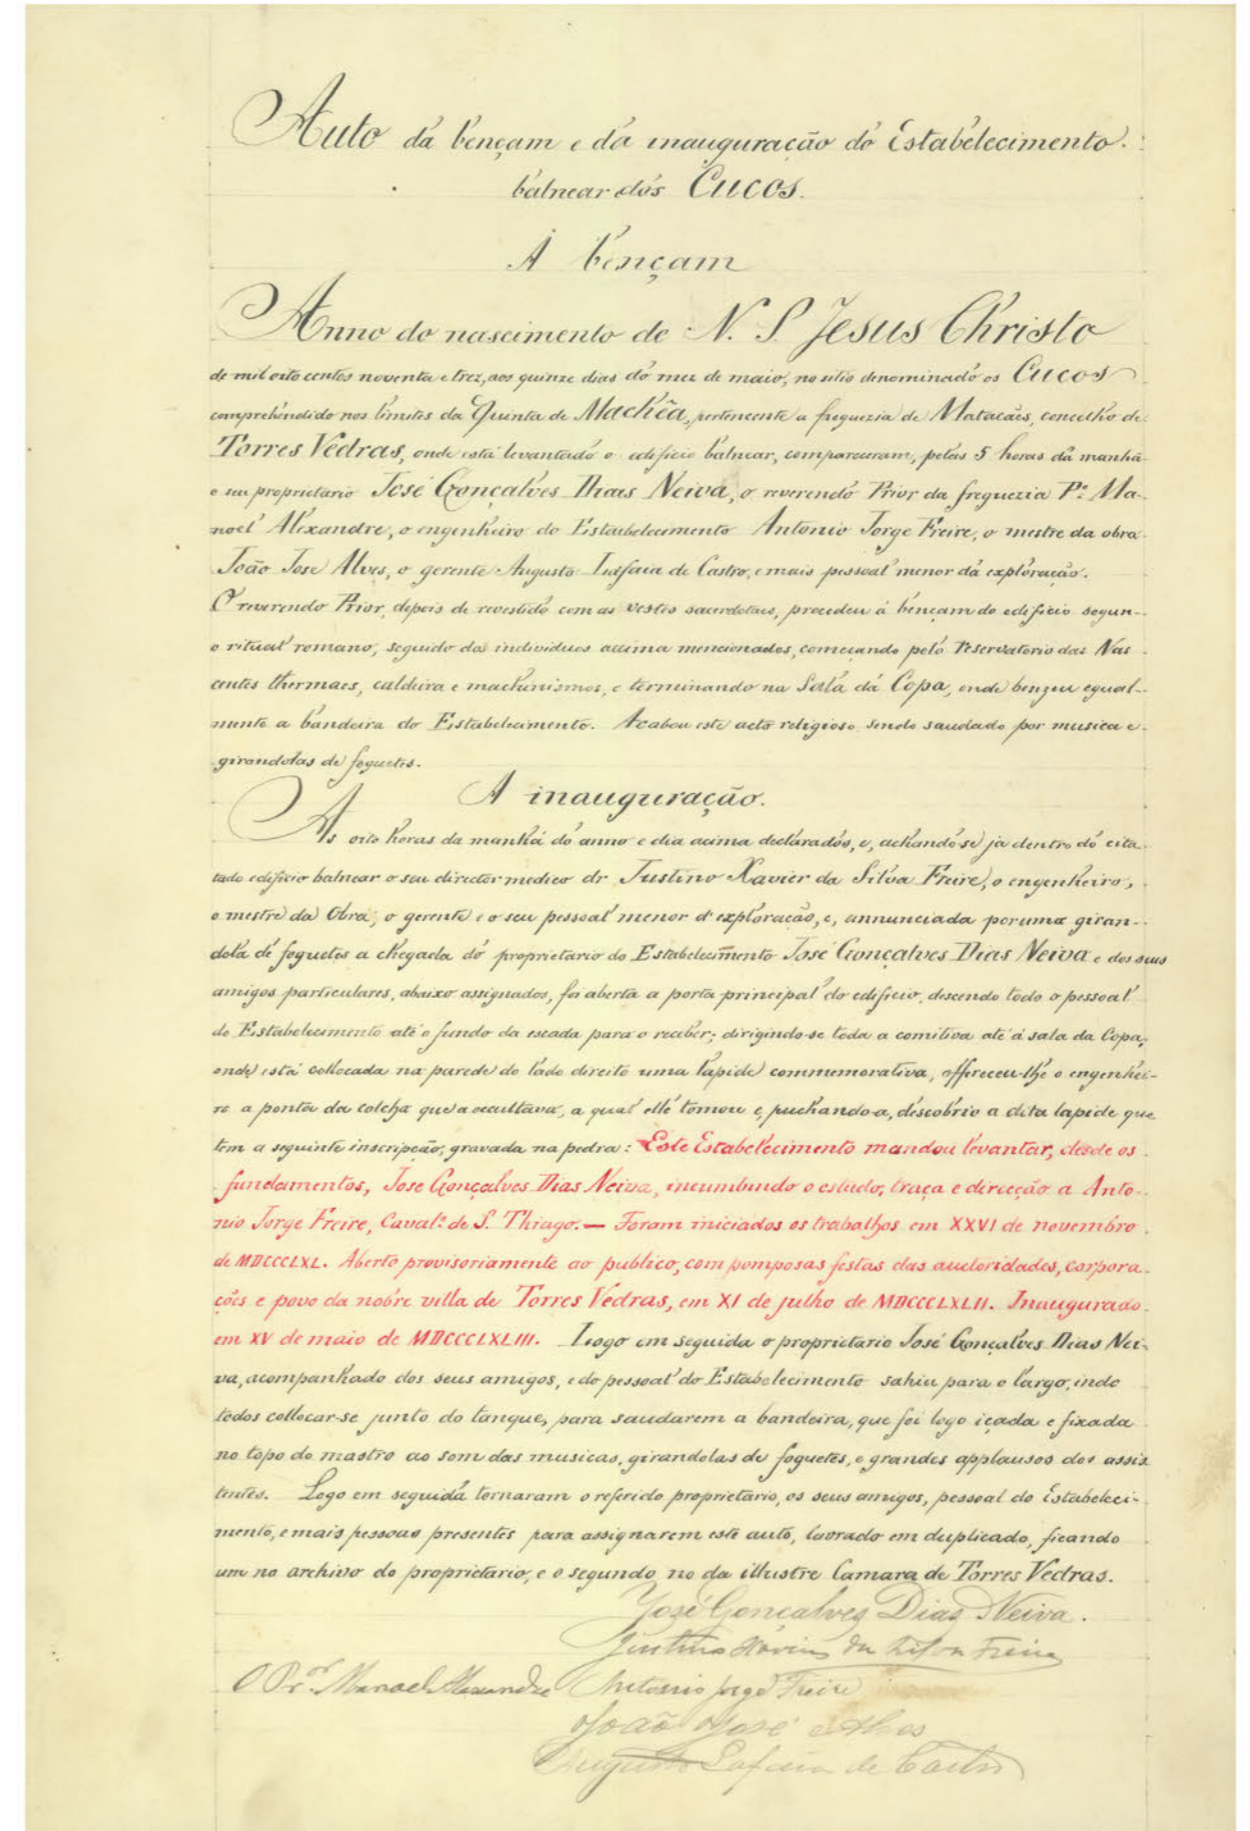 Auto da bençam e da inauguração do Estabelecimento
balnear dos Cucos.
A bençam
Anno do nascimento de N. S. Jesus Christo
de mil oito centos noventa e trez, aos quinze dias do mez de maio, no sitio denominado os Cucos
comprehendido nos limites da Quinta de Machêa, pertencente a freguezia de Matacães, concelho de
Torres Vedras, onde está levantado o edificio balnear, compareceram, pelas 5 horas da manhã
o seu proprietario José Gonçalves Dias Neiva, o reverendo Prior da freguezia Pe. Ma-
noel Alexandre, o engenheiro do Estabelecimento Antonio Jorge Freire, o mestre da obra
João José Alves, o gerente Augusto Lafaia de Castro, e mais pessoal menor da exploração.
O reverendo Prior, depois de revestido com as vestes sacerdotaes, procedeu á bençam do edificio segun-
o ritual romano, seguido dos individuos acima mencionados, começando pelo Reservatorio das Nas
centes thermaes, caldeira e machinismos, e terminando na Sala da Copa, onde benzeu egual-
mente a bandeira do Estabelecimento. Acabou este acto religioso sendo saudado por musica e
girandolas de foguetes.
A inauguração.
As oito horas da manhã do anno e dia acima declarados, e, achando-se já dentro do cita
tado edificio balnear o seu director medico dr Justino Xavier da Silva Freire, o engenheiro,
o mestre da Obra, o gerente e o seu pessoal menor d'exploração, e, annunciada por uma giran-
dola de foguetes a chegada do proprietario do Estabelecimento José Gonçalves Dias Neiva e dos seus
amigos particulares, abaixo assignados, foi aberta a porta principal do edificio, descendo todo o pessoal
do Estabelecimento até o fundo da escada para o receber; dirigindo-se toda a comitiva até á sala da Copa,
onde está collocada na parede do lado direito uma lapide commemorativa, offereceu-lhe o engenhei-
ro a ponta da colcha que a occultava, a qual elle tomou e, puchando-a, descobrio a dita lapide que
tem a seguinte inscripção, gravada na pedra: Este Estabelecimento mandou levantar, desde os
fundamentos, Jose Gonçalves Dias Neiva, incumbindo o estudo, traça e direcção a Anto-
nio Jorge Freire, Caval.º de S. Thiago. — Foram iniciados os trabalhos em XXVI de novembro
de MDCCCLXL. Aberto provisoriamente ao publico, com pomposas festas das auctoridades, corpora-
ções e povo da nobre villa de Torres Vedras, em XI de julho de MDCCCLXLII. Inaugurado
em XV de maio de MDCCCLXLIII. Logo em seguida o proprietario José Gonçalves Dias Nei-
va, acompanhado dos seus amigos, e do pessoal do Estabelecimento sahiu para o largo, indo
todos collocar-se junto do tanque, para saudarem a bandeira, que foi logo içada e fixada
no topo do mastro ao som das musicas, girandolas de foguetes, e grandes applausos dos assis
tentes. Logo em seguida tornaram o referido proprietario, os seus amigos, pessoal do Estabeleci-
mento, e mais pessoas presentes para assignarem este auto, lavrado em duplicado, ficando
um no archivo do proprietario, e o segundo no da illustre Camara de Torres Vedras.
José Gonçalves Dias Neiva.
Justino Xavier da Silva Freire
O Pr.or Manoel Alexandre Antonio Jorge Freire
João José Alves
Augusto Lafaia de Castro